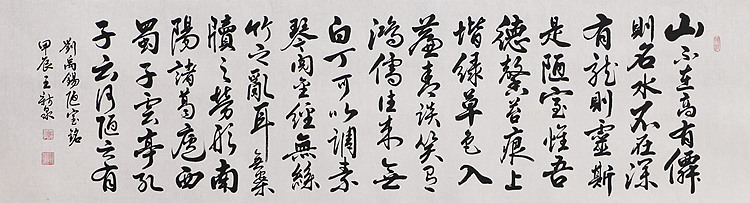 山不在高有僊
則名水不在深
有龍則靈斯
是陋室惟吾
德馨苔痕上
堦綠草色入
簾青談笑有
鴻儒往來無
白丁可以調素
琴閱金經無絲
竹之亂耳無案
牘之勞形南
陽諸葛廬西
蜀子雲亭孔
子云何陋之有
劉禹錫陋室銘
甲辰王